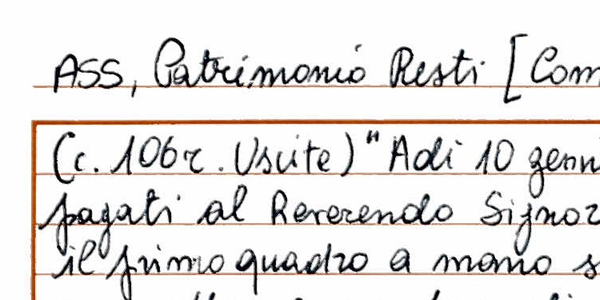 ASS, Patrimonio Resti [Com
(c. 106r. Uscite) "Adi 10 genn
pagati al Reverendo Signor
il primo quadro a mano s